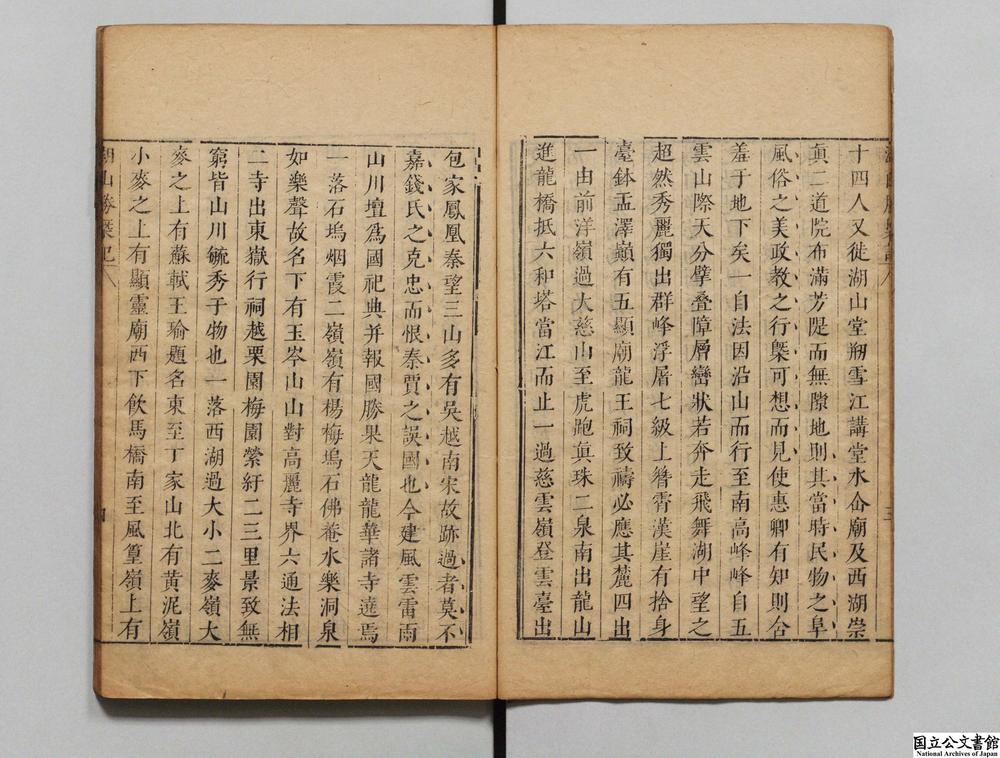 十四人又徙湖山堂剏雪江講堂水仚廟及西湖崇
眞二道院布滿芳隄而無隙地則其當時民物之阜
風俗之美政教之行槩可想而見使惠卿有知則合
羞于地下矣一自法因沿山而行至南高峰峰自五
雲山際天分擘叠障層巒狀若奔走飛舞湖中望之
超然秀麗獨出群峰浮屠七級上簪霄漢崖有捨身
臺鉢盂澤巔有五顯廟龍王祠致禱必應其麓四出
一由前洋嶺過大慈山至虎跑眞珠二泉南出龍山
進龍橋抵六和塔當江而止一過慈雲嶺登雲臺出
包家鳳凰秦望三山多有吳越南宋故跡過者莫不
嘉錢氏之克忠而恨秦賈之誤國也今建風雲雷雨
山川壇爲國祀典并報國勝果天龍龍華諸寺遶焉
一落石塢烟霞二嶺嶺有楊梅塢石佛菴水樂洞泉
如樂聲故名下有玉岑山山對高麗寺界六通法相
二寺出東嶽行祠越栗園梅園縈紆二三里景致無
窮皆山川毓秀于物也一落西湖過大小二麥嶺大
麥之上有蘇軾王瑜題名東至丁家山北有黃泥嶺
小麥之上有顯靈廟西下飮馬橋南至風篁嶺上有
湖山勝槩記
四
国立公文書館
National Archives of Japan